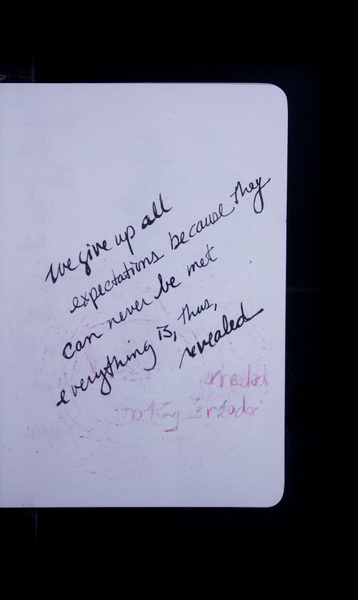 we give up all
expectations because they
can never be met
everything is, thus,
revealed